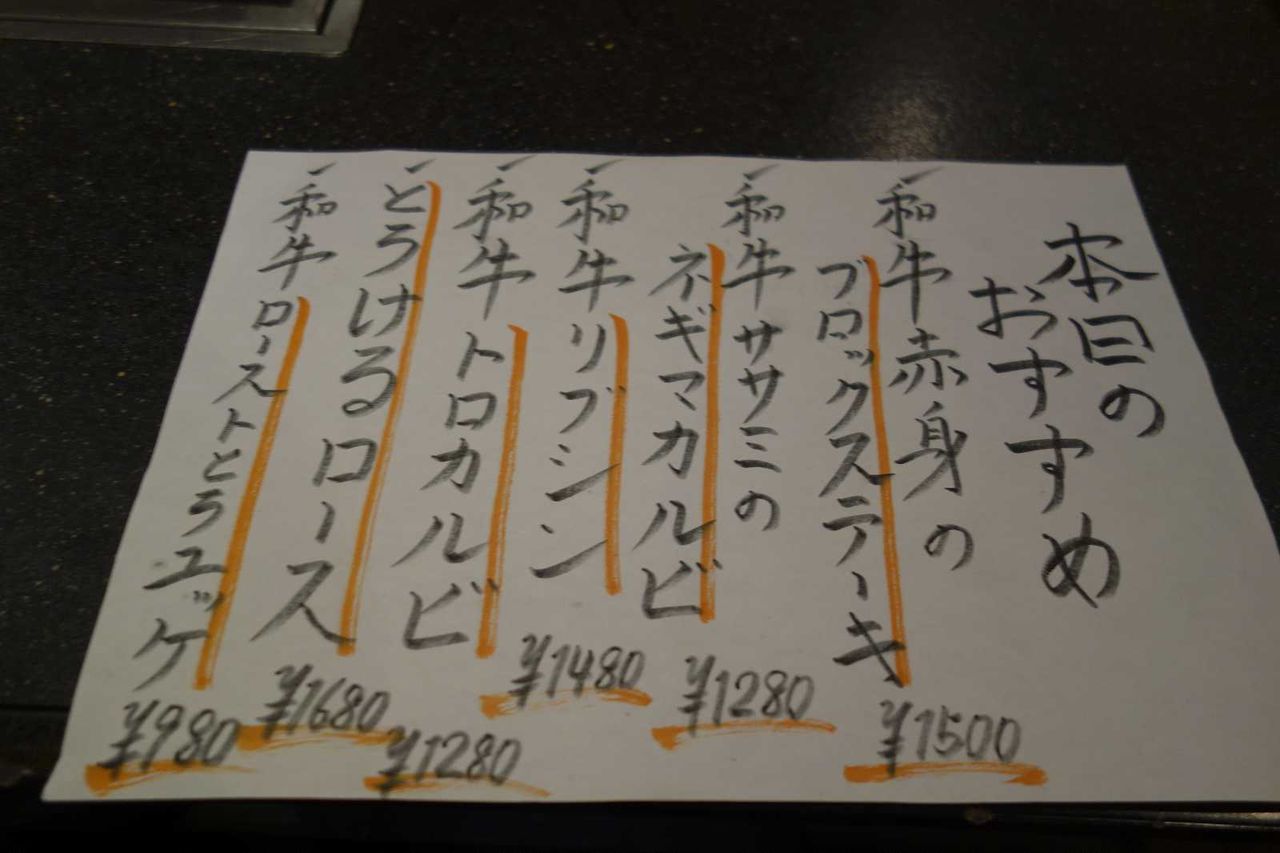 本日の
おすすめ
一和牛赤身の
ブロックステーキ
¥1500
一和牛ササミの
ネギマカルビ
¥1280
一和牛リブシン
¥1480
一和牛トロカルビ
¥1280
一とろけるロース
¥1680
一和牛ローストとろユッケ
¥980